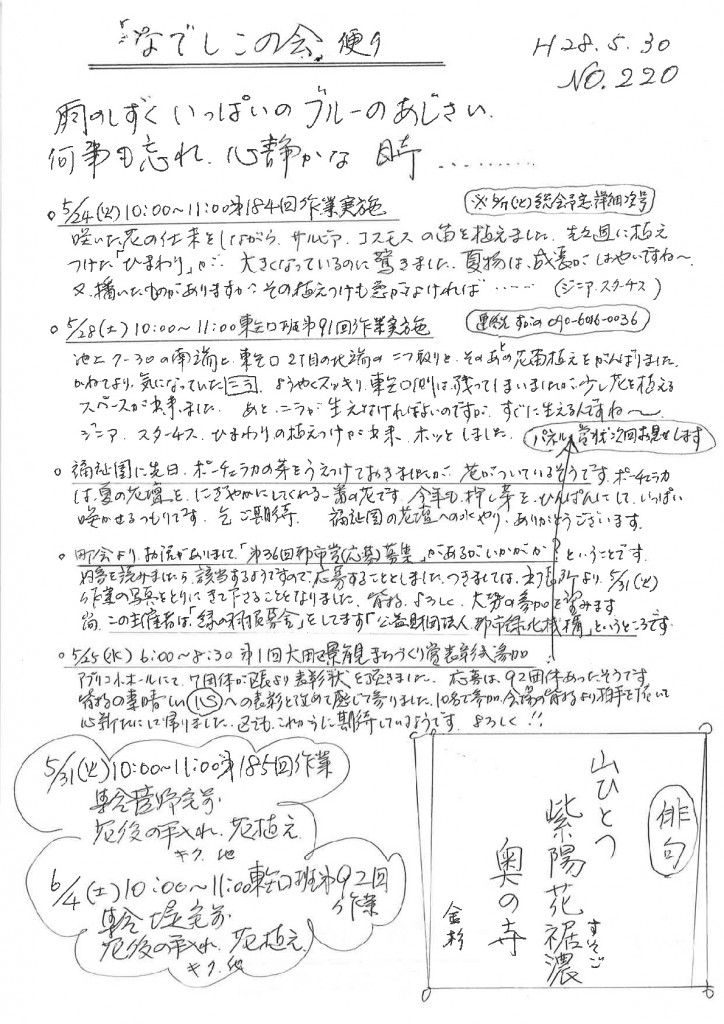 「なでしこの会」便り
H28.5.30
NO.220
雨のしずく いっぱいの ブルーのあじさい.
何事も忘れ. 心静かな 時 ..........
○ 5/24(火)10:00〜11:00第184回作業実施
総会予定詳細次号
咲いた花の仕末をしながら サルビア. コスモス の苗を植えました. 先週に植え
つけた「ひまわり」が 大きくなっているのに 驚きました. 夏物は成長がはやいですね〜
又. 播いたものがありますが その植えつけも急がなければ ...... (ジニア. スターチス)
○ 5/28(土)10:00〜11:00東矢口班第91回作業実施
連絡先 すがの 090-6016-0036
池上7-30の南端と. 東矢口2丁目の北端の 二つ取りと. そのあとの花苗植えをがんばりました.
かねてより. 気になっていた ようやくスッキリ. 東矢口側は残ってしまいましたが 少し花を植える
スペースが出来ました. あと. ニラが 生えなければよいのですが. すぐに生えるんですね〜
ジニア. スターチス. ひまわりの植えつけが出来. ホッとしました.
パネル. 賞状次回お見せします
○ 福祉園に先日. ポーチュラカの芽をうえつけておきましたが. 花がついているそうです. ポーチュラカ
は. 夏の花壇を. にぎやかにしてくれる一番の花です. 今年も. 挿し芽を. ひんぱんにして. いっぱい
咲かせるつもりです. 乞 ご期待. 福祉園の花壇への水やり. ありがとうございます.
○ 町会より. お話がありまして「第36回都市賞(応募)募集」があるがいかがか？ということです.
内容を読みましたら. 該当するようですので. 応募することとしました. つきましては. 5/31(火)
作業の写真をとりに きて下さることになりました. 皆様. よろしく. 大勢の参加を望みます
尚. この主催者は「緑の 募金」をしてます「公益財団法人. 都市緑化機構」というところです.
○ 5/25(水) 6:00〜8:30 第1回大田区景観まちづくり賞表彰式参加
アプリコホールにて. 7団体が区長より表彰状を頂きました. 応募は. 92団体あったそうです
皆様の素晴しい への表彰と改めて感じて参りました. 10名で参加. 会場の皆様より拍手を頂いて
心新たにして帰りました. 区でも. これからに期待しているようです. よろしく!!
5/31(火)10:00〜11:00第185回作業
集合菅野宅前
花後の手入れ. 花植え.
キク. 他
6/4(土)10:00〜11:00東矢口班第92回
作業
集合 堤宅前
花後の手入れ. 花植え
キク. 他
俳句
山ひとつ
紫陽花裾濃
すそご
奥の寺
金杉